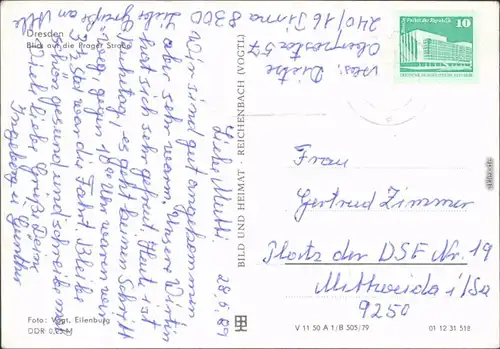 Dresden
Blick auf die Prager Straße
Liebe Mutti! 28.6.89
Wir sind gut angekommen
aber sehr warm. Unsere Wirtin
hat sich sehr gefreut. Heut ist
Ruhetag, es geht keinen Schritt
weg, gegen 18 Uhr waren wir
da, war die Fahrt. Bleibe
schön gesund und schreibe mal
Viele liebe Grüße Deine
Ingeborg u. Günther
Liebe Grüße an Alle
Obenposta 57
240/16 Pirna 8300
BILD UND HEIMAT REICHENBACH (VOGTL)
Palast der Republik
10
DEUTSCHE DEMOKRATISCHE REPUBLIK
Frau
Gertrud Zimmer
Platz der DSF Nr. 19
Mittweida i/Sa
9250
Foto: Vogt, Eilenburg
DDR 0,25 M
V 11 50 A 1/B 505/79
01 12 31 518